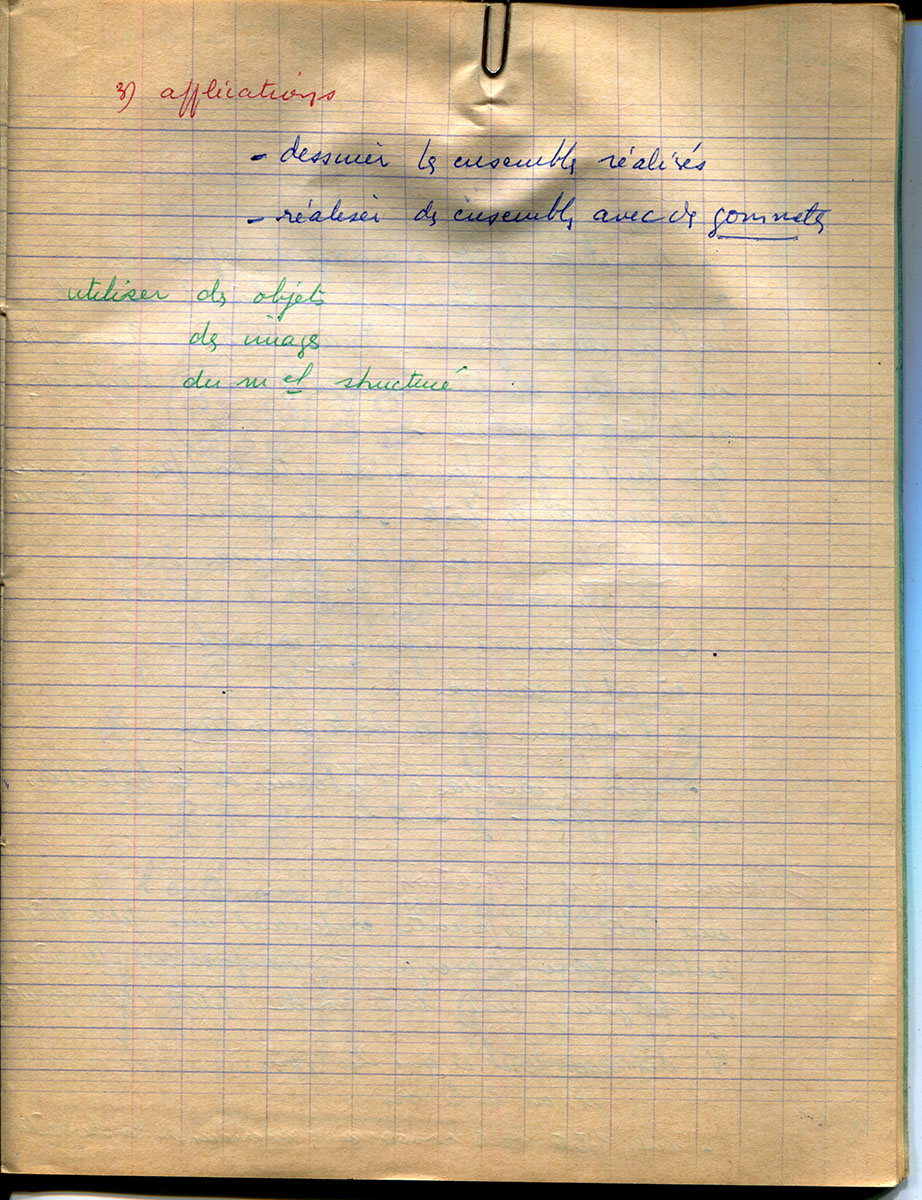 3) applications
- dessiner les ensembles réalisés
- réaliser des ensembles avec des gommettes
utiliser des objets
des images
du mel structuré